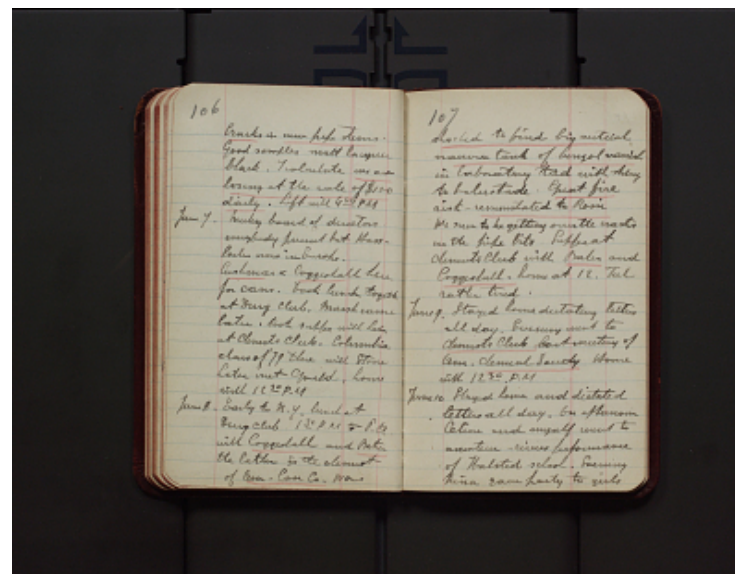 106
cracks in new pipe stems.
Good samples matt lacquer
black. I calculate we are
losing at the rate of $500
daily. Left with 6 P.M
June 7. Turkey board of directors
everybody present but Hass-
Cushman & Coggeshall here
for cans. Took lunch together
at Drug Club. Marsh came
later. Took supper with him
at Chemists Club. Columbia
class of 79 there with Stone
later met Oswald, home
with 12 P.M
June 8. Early to N.Y. lunch at
Drug Club
with Coggeshall and Bates
the latter is the chemist
of Am. Can Co. was
107
shocked to find big material
narrow tank of benzol varnish
in laboratory
Great fire
risk
We seem to be getting over the cracks
in the pipe bits. Supper at
Chemists Club with Bates and
Coggeshall. home at 12. Feel
rather tired.
June 9. Stayed home dictating letters
all day. Evening went to
Chemists Club last meeting of
Am. Chemical Society Home
with 12 P.M
June 10. Stayed home and dictated
letters all day. In afternoon
Celine and myself went to
performance
of Halsted school. Evening
Nina gave party to girls